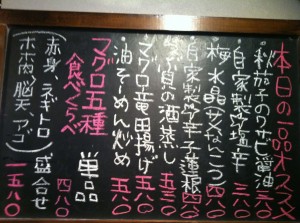 本日の一品オススメ
秋茄子のワサビ醤油
自家製塩辛
梅水晶サメなんこつ
自家製辛子蓮根
貝の酒蒸し 五八〇
マグロ竜田揚げ 五八〇
油そーめん炒め 五八〇
マグロ五種
食べくらべ
単品 四八〇
(赤身、ネギトロ
ホホ肉、脳天、アゴ)
盛合せ 一五八〇